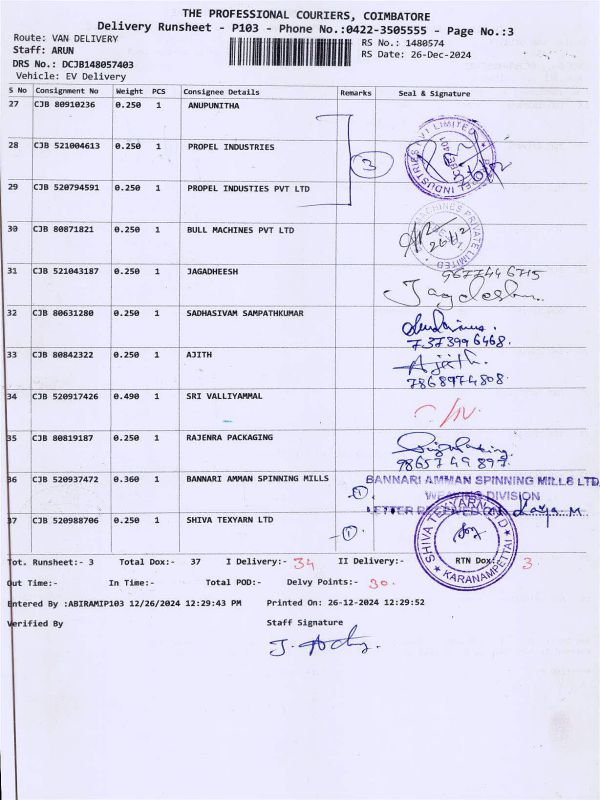 THE PROFESSIONAL COURIERS, COIMBATORE
Delivery Runsheet - P103 - Phone No.:0422-3505555 - Page No.:3
Route: VAN DELIVERY
RS No.: 1480574
Staff: ARUN
RS Date: 26-Dec-2024
DRS No.: DCJB148057403
Vehicle: EV Delivery
S No Consignment No Weight PCS Consignee Details Remarks Seal & Signature
27 CJB 80910236 0.250 1 ANUPUNITHA
28 CJB 521004613 0.250 1 PROPEL INDUSTRIES
3
29 CJB 520794591 0.250 1 PROPEL INDUSTIES PVT LTD
30 CJB 80871821 0.250 1 BULL MACHINES PVT LTD
26/12
31 CJB 521043187 0.250 1 JAGADHEESH
9677446715
32 CJB 80631280 0.250 1 SADHASIVAM SAMPATHKUMAR
7373996468.
33 CJB 80842322 0.250 1 AJITH
Ajith.
7868974808.
34 CJB 520917426 0.490 1 SRI VALLIYAMMAL
35 CJB 80819187 0.250 1 RAJENRA PACKAGING
9865749897.
36 CJB 520937472 0.360 1 BANNARI AMMAN SPINNING MILLS
1
BANNARI AMMAN SPINNING MILLS LTD
WEAVING DIVISION
37 CJB 520988706 0.250 1 SHIVA TEXYARN LTD
1
SHIVA TEXYARN LTD
KARANAMPETTAI
Tot. Runsheet:- 3 Total Dox:- 37 I Delivery:- 34 II Delivery:- RTN Dox: 3
Out Time:- In Time:- Total POD:- Delvy Points:- 30.
Entered By :ABIRAMIP103 12/26/2024 12:29:43 PM Printed On: 26-12-2024 12:29:52
Verified By Staff Signature